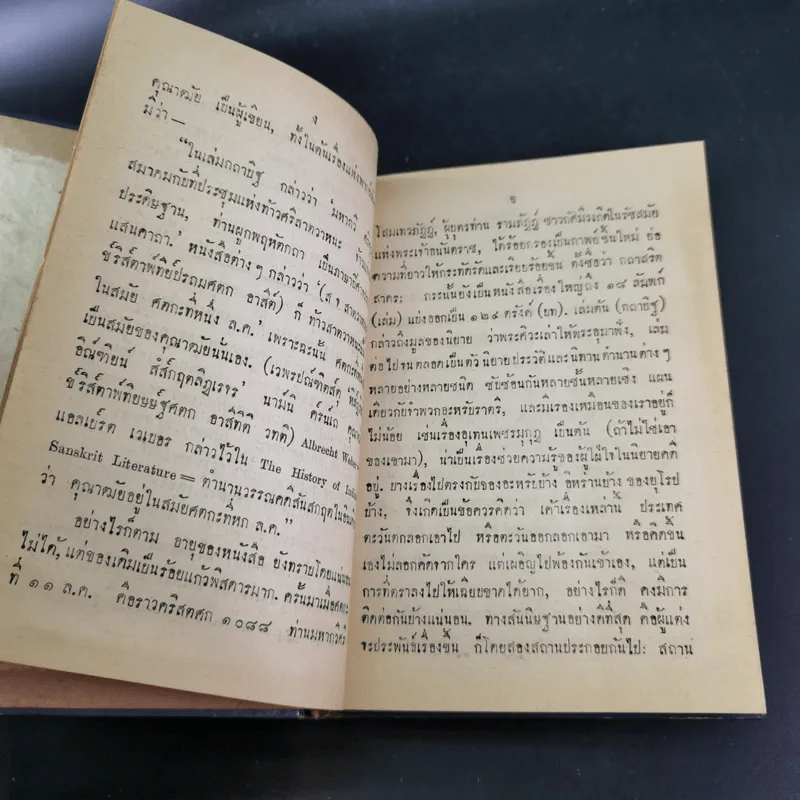 ง
คุณาฒมัย เป็นผู้เขียน, ทั้งในต้นเรื่องแห่ง
มีว่า—
“ในเล่มกถาบิฐ กล่าวว่า มหากวี
สมาคมกับที่ประชุมแห่งท้าวศริสาตวาหนะ
ประดิษฐาน, ท่านผูกพฤหัตกถา เป็นภาษา
แสนคาถา.’ หนังสือต่างๆ กล่าวว่า ‘
ขฺริสฺตาพฺทิย์ปฺรถมศตก อาสีต์) ก็ ท้าวสาตวาหน
ในสมัย ศตกะที่หนึ่ง ล.ศ.’ เพราะฉะนั้น ศตกะที่
เป็นสมัยของคุณาฒมัยนั้นเอง. (เวพรปณฺฑิตสฺตุ
อิณฺฑิยนฺ สํสฺกฤตลิฏเรเจร’ นามฺนิ
ขฺริสฺตาพฺทิยษษฺฐศตก อาสีทิติ วทติ) Albrecht
แอลเบร์ต เวเบอร กล่าวไว้ใน The History of
Sanskrit Literature = ตำนานวรรณคดีสันสกฤต
ว่า คุณาฒมัยอยู่ในสมัยศตกะที่หก ล.ศ.”
อย่างไรก็ตาม อายุของหนังสือ ยังทราบโดย
ไม่ได้, แต่ของเดิมเป็นร้อยแก้วพิสดารมาก. ครั้นมาเมื่อ
ที่ ๑๑ ล.ศ. คือราวคริสตศก ๑๐๘๘ ท่านมหากวี
จ
โสมเทวภัฏฏ์, ผู้บุตรท่าน รามภัฏฏ์ ชาวกัศมิระเกิดในรัชสมัย
แห่งพระเจ้าอนันตราช, ได้ร้อยกรองเป็นกาพย์ขึ้นใหม่ ย่อ
ความที่ยาวให้กระทัดรัดและเรียบร้อยขึ้น ตั้งชื่อว่า กถาสริต
สาคร: กระนั้นยังเป็นหนังสือเรื่องใหญ่ถึง ๑๘ ลัมพก์
(เล่ม) แบ่งออกเป็น ๑๒๔ ตรังค์ (บท). เล่มต้น (กถาบิฐ)
กล่าวถึงมูลของนิยาย ว่าพระศิวะเล่าให้พระอุมาฟัง, เล่ม
ต่อไปจนตลอดเป็นตัวนิยายประวัติและนิทานตำนานต่างๆ
หลายอย่างหลายชนิด ซับซ้อนกันหลายชั้นหลายเชิง แผน
เดียวกับจำพวกอะหรับราตรี, และมีเรื่องเหมือนของเราอยู่ก็
ไม่น้อย เช่นเรื่องอุเทนเพชรมุกฎ เป็นต้น (ถ้าไม่ใช่เอา
ของเขามา), น่าเป็นเรื่องช่วยความรู้ของผู้ใฝ่ใจในนิยายคดี
อยู่. บางเรื่องไปตรงกับของอะหรับบ้าง อิหร่านบ้าง ของยุโรป
บ้าง, จึ่งเกิดเป็นข้อควรคิดว่า เค้าเรื่องเหล่านี้ ประเทศ
ตะวันตกลอกเอาไป หรือตะวันออกลอกเอามา หรือคิดขึ้น
เองไม่ลอกคัดจากใคร แต่เผอิญไปพ้องกันเข้าเอง, แต่เป็น
การที่ตราลงไปให้เฉียบขาดได้ยาก, อย่างไรก็ดี คงมีการ
ติดต่อกันบ้างแน่นอน. ทางสันนิษฐานอย่างดีที่สุด คือผู้แต่ง
จะประพันธ์เรื่องขึ้น ก็โดยสองสถานประกอบกันไป: สถาน